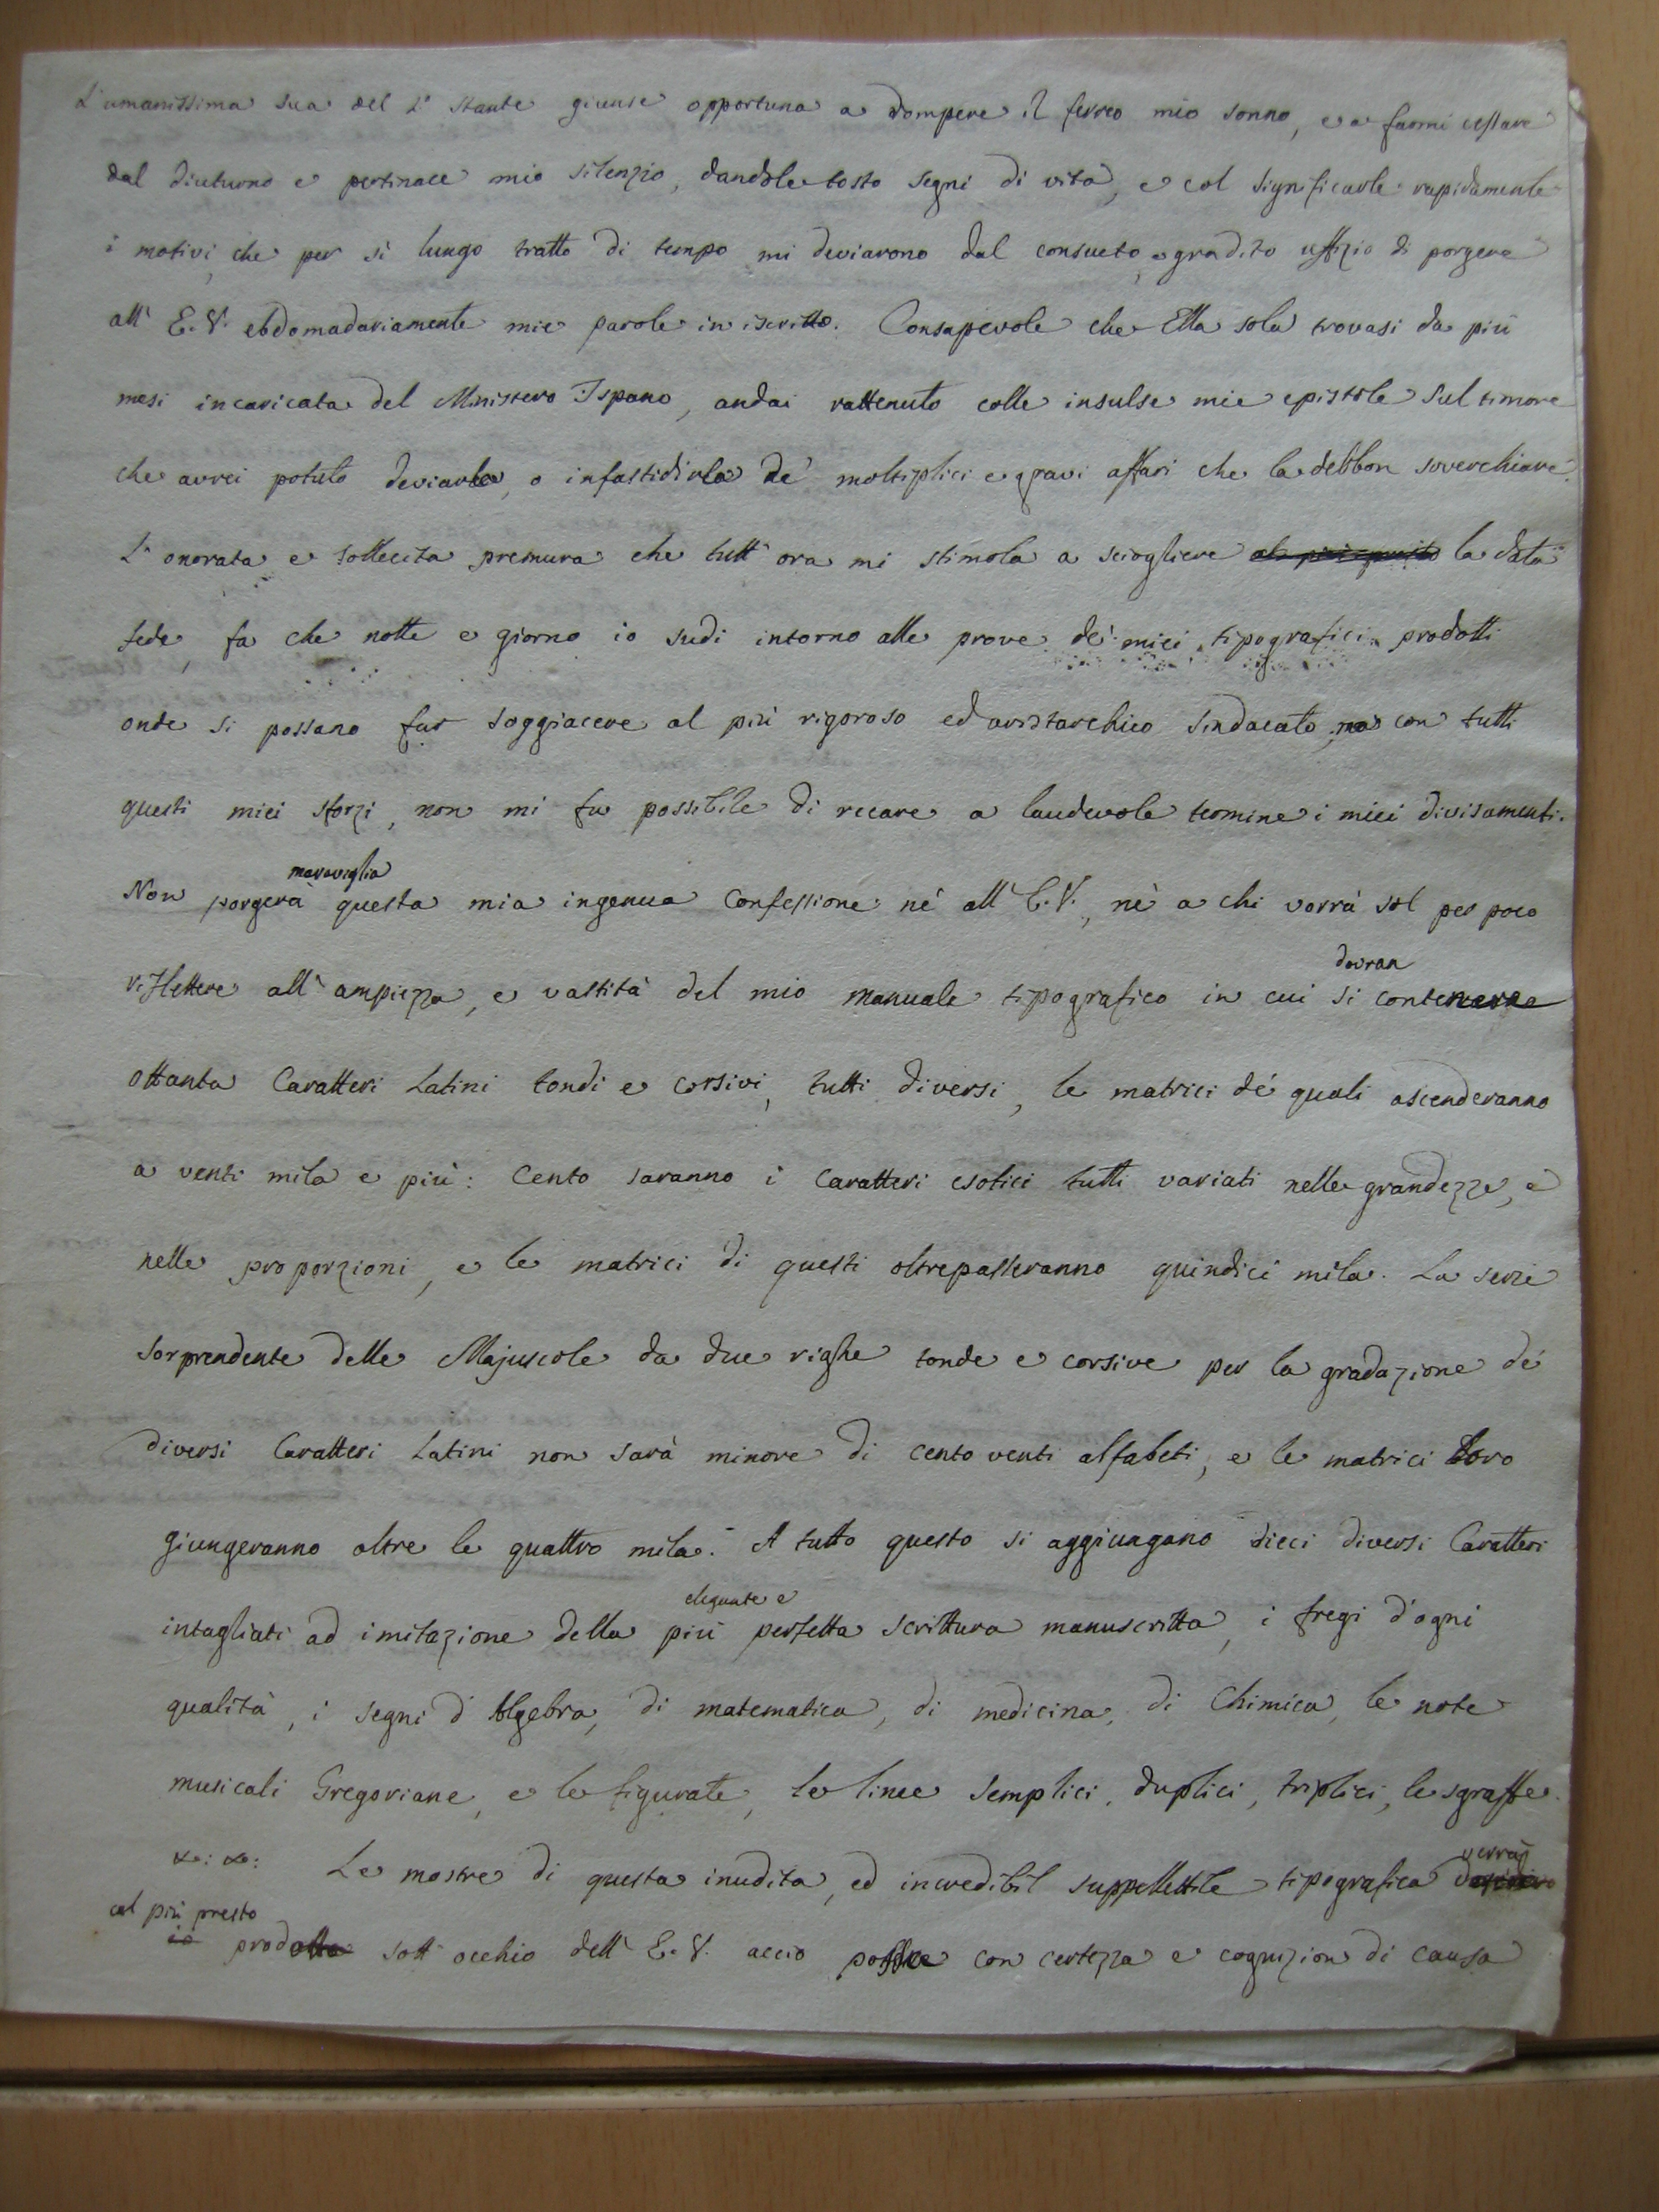 L'umanissima sua del 2° stante giunse opportuna a rompere il ferreo mio sonno, e a farmi cessare
dal diuturno e pertinace mio silenzio, dandole tosto segni di vita, e col significarle rapidamente
i motivi, che per sì lungo tratto di tempo mi deviarono dal consueto, e gradito uffizio di porgere
all' E. V. ebdomadariamente mie parole in iscritto. Consapevole che Ella sola trovasi da più
mesi incaricata del Ministero Ispano, andai rattenuto colle insulse mie epistole sul timore
che avrei potuto deviarla, o infastidirla de' moltiplici e gravi affari che la debbon soverchiare.
L' onorata e sollecita premura che tutt' ora mi stimola a sciogliere la data
fede, fa che notte e giorno io sudi intorno alle prove de' miei tipografici prodotti
onde si possano far soggiacere al più rigoroso ed aristarchico sindacato; ma con tutti
questi miei sforzi, non mi fu possibile di recare a laudevole termine i miei divisamenti.
maraviglia
Non porgerà questa mia ingenua Confessione nè all' E. V., nè a chi vorrà sol per poco
dovran
riflettere all' ampiezza, e vastità del mio manuale tipografico in cui si contenere
ottanta Caratteri Latini tondi e corsivi, tutti diversi, le matrici de' quali ascenderanno
a venti mila e più: Cento saranno i Caratteri esotici tutti variati nelle grandezze, e
nelle proporzioni, e le matrici di questi oltrepasseranno quindici mila. La serie
sorprendente delle Majuscole da due righe tonde e corsive per la gradazione de'
diversi Caratteri Latini non sarà minore di cento venti alfabeti, e le matrici loro
giungeranno oltre le quattro mila. A tutto questo si aggiungano dieci diversi Caratteri
elegante e
intagliati ad imitazione della più perfetta scrittura manuscritta, i fregi d'ogni
qualità, i segni d' Algebra, di matematica, di medicina, di Chimica, le note
musicali Gregoriane, e le figurate, le linee semplici, duplici, triplici, le sgraffe
&: &: Le mostre di questa inudita, ed incredibil suppellettile tipografica
verrà
al più presto
io prodotta sott' occhio dell' E. V. acciò possa con certezza e cognizion di causa